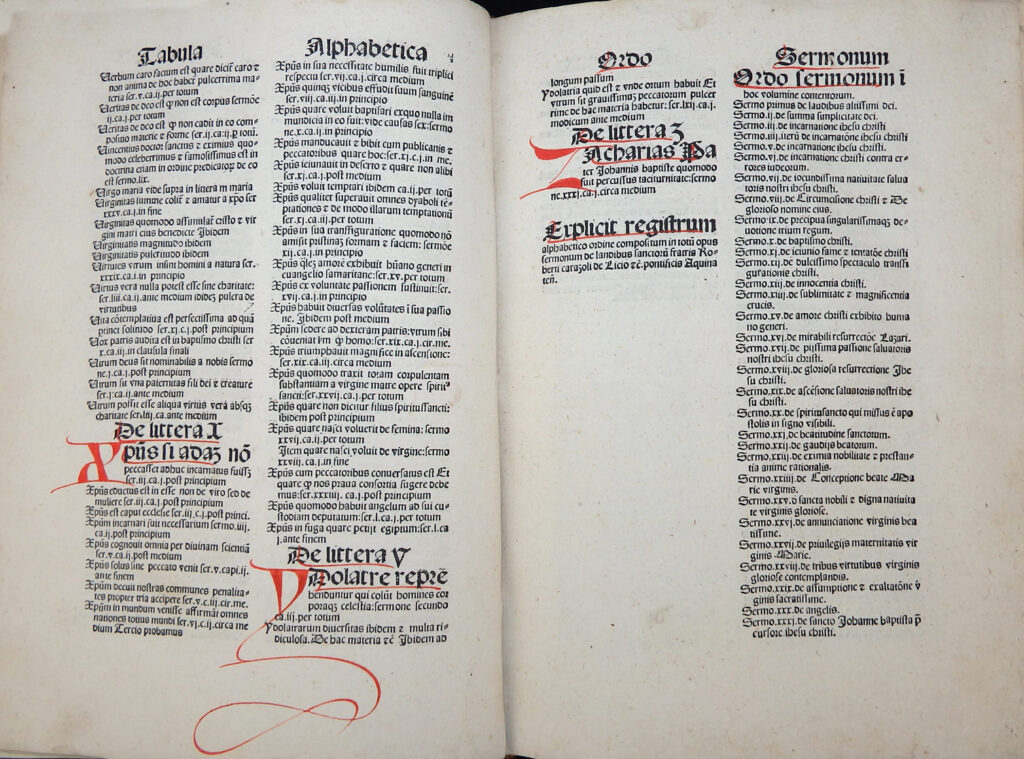 Tabula
Verbum caro factum est quare dicit̃ caro ⁊
non anima de hoc habet̃ pulcerrima ma-
teria ser.v.ca.ij.per totum
Veritas de deo est ꝙ non est corpus sermõe
ij.ca.ij.per totum
Veritas de deo est ꝙ non cadit in eo com-
positio materie ⁊ forme ser.ij.ca.ij.ꝑ totũ.
Vincentius doctor sanctus ⁊ eximius quo-
modo celeberrimus ⁊ famosissimus est in
doctrina etiam in ordine predicatoꝝ de eo
est sermo.lix.
Virgo maria vide supra in littera m maria
Virginitas summe colit̃ ⁊ amatur a xp̃o ser
xxxv.ca.ij.in fine
Virginitas quomodo assimulat̃ cristo ⁊ vir
gini matri eius benedicte Ibidem
Virginitatis magnitudo ibidem
Virginitatis pulcritudo ibidem
Virtutes vtrum insint homini a natura ser.
xxxix.ca.ij.in principio
Virtus vera nulla potest esse sine charitate:
ser.liij.ca.ij.ante medium ibidẽ pulcra de
virtutibus
Vita cõtemplatiua est perfectissima ad quã
princi solitudo ser.xj.ca.j.post principium
Vox patris audita est in baptismo christi ser
x.ca.iij.in clausula finali
Vtrum deus sit nominabilis a nobis sermo
ne.j.ca.j.post principium
Vtrum sit vna paternitas filij dei ⁊ creature
ser.j.ca.ij.ante medium
Vtrum possit esse aliqua virtus vera absꝙ
charitate ser.liij.ca.ante medium
De littera X
Xpũs si adaʒ nõ
peccasset adhuc incarnatus fuissʒ
ser.iij.ca.j.post principium
Xpũs eductus est in esse non de viro sed de
muliere ser.iij.ca.j.post principium
Xpũs est caput ecclesie ser.iij.c.j.post princi.
Xpũm incarnari fuit necessarium sermo.iiij.
ca.ij.post principium
Xpũs cognouit omnia per diuinam scientiã
ser.v.ca.ij.post medium
Xpũs solus sine peccato venit ser.v.capi.ij.
ante finem
Xpũm decuit nostras communes penalita-
tes propter tria accipere ser.v.c.iij.cir.me.
Xpũm in mundum venisse affirmãt omnes
nationes totius mundi ser.vj.c.ij.circa me
dium Tercio probamus
Alphabetica
Xpũs in sua necessitate humilis fuit triplici
respectu ser.vij.ca.ij.circa medium
Xpũs quinqꝫ vicibus effudit suum sanguinẽ
ser.viij.ca.ij.in principio
Xpũs quare voluit baptisari exquo nulla im
mundicia in eo fuit: vide causas sex:sermo
ne.x.ca.ij.in principio
Xpũs manducauit ⁊ bibit cum publicanis ⁊
peccatoribus quare hoc:ser.xj.c.j.in me.
Xpũs ieiunauit in deserto ⁊ quare non alibi
ser.xj.ca.ij.per totum
Xpũs voluit temptari ibidem ca.ij.per totũ
Xpũs qualiter superauit omnes dyaboli tẽ-
ptationes ⁊ de modo illarum temptationũ
ser.xj.ca.iij.per totum
Xpũs in sua transffiguratione quomodo nõ
amisit pristinaʒ formam ⁊ faciem: sermõe
xij.ca.j.in principio
Xpũs qlẽʒ amorẽ exhibuit hũano generi in
euangelio samaritane:ser.xv.per totum
Xpũs ex voluntate passionem sustinuit:ser.
xvij.ca.j.in principio
Xpũs habuit diuersas volũtates ĩ sua passio
ne. Ibidem post medium
Xpũm sedere ad dexteram patris:vtrum sibi
cõueniat inq̃ꝫ homo:ser.xix.ca.j.cir.me.
Xpũs triumphauit magnifice in ascensione:
ser.xix.ca.iij.circa medium
Xpũs quomodo traxit totam corpulentam
substantiam a virgine matre opere spirit⁹
sancti:ser.xxvij.ca.j.per totum
Xpũs quare non dicitur filius spiritussancti:
ibidem post principium
Xpũs quare nasci voluerit de femina: sermo
xxvij.ca.ij.per totum
Item quare nasci voluit de virgine:sermo
xxviij.ca.j.in fine
Xpũs cum peccatoribus conuersatus est Et
quare ꝙ nos praua consortia fugere debe
mus:ser.xxxiij.ca.j.post principium
Xpũs quomodo habuit angelum ad sui cu-
stodiam deputatum:ser.l.ca.j.per totum
Xpũs in fuga quare petijt egiptum:ser.l.ca
.j.ante finem
De littera V
Ydolatre reprẽ
henduntur qui colũt homines cor
poraqꝫ celestia:sermone secundo
ca.iij.per totum
Ydolatrarum diuersitas ibidem ⁊ multa ri-
diculosa. De hac materia eẽ Ibidem ad
Ordo
longum passum
Ydolatria quid est ⁊ vnde ortum habuit Et
vtrum sit grauissimũ peccatorum pulcer
rime de hac materia habetur: ser.lxij.ca.j.
modicum ante medium
De littera ʒ
Zacharias Pa
ter Johannis baptiste quomodo
fuit percussus taciturnitate:sermo
ne.xxxj.ca.j.circa medium
Explicit registrum
alphabetico ordine compositum in totũ opus
sermonum de laudibus sanctorũ fratris Ro-
berti carazoli de Licio ⁊c̃.pontificis Aquina
ten̄.
Sermonum
Ordo sermonum ĩ
hoc volumine contentorum.
Sermo primus de laudibus altissimi dei.
Sermo.ij.de summa simplicitate dei.
Sermo.iij.de incarnatione ihesu christi
Sermo.iiij.iterũ de incarnatõe ihesu christi
Sermo.v.de incarnatione ihesu christi.
Sermo.vj.de incarnatione christi contra er-
rores iudeorum.
Sermo.vij.de iocundissima natiuitate salua
toris nostri ihesu christi.
Sermo.viij.de Circumcisione christi ⁊ De
glorioso nomine eius.
Sermo.ix.de precipua singularissimaqꝫ de-
uotione trium regum.
Sermo.x.de baptismo christi.
Sermo.xj.de ieiunio fame ⁊ tẽtatõe christi
Sermo.xij.de dulcissimo spectaculo transfi
gurationis christi.
Sermo.xiij.de innocentia christi.
Sermo.xiiij.de sublimitate ⁊ magnificentia
crucis.
Sermo.xv.de amore christi exhibito huma
no generi.
Sermo.xvj.de mirabili resurrectõe Lazari.
Sermo.xvij.de pijssima passione saluatoris
nostri ihesu christi.
Sermo.xviij.de gloriosa resurrectione Ihe
su christi.
Sermo.xix.de ascẽsione saluatoris nostri ihe
su christi.
Sermo.xx.de spiritusancto qui missus ẽ apo
stolis in signo visibili.
Sermo.xxj.de beatitudine sanctorum.
Sermo.xxij.de gaudijs beatorum.
Sermo.xxiij.de eximia nobilitate ⁊ prestan-
tia anime rationalis.
Sermo.xxiiij.de Conceptione beate Ma
rie virginis.
Sermo.xxv.de sancta nobili ⁊ digna natiuita
te virginis gloriose.
Sermo.xxvj.de annunciatione virginis bea
tissime.
Sermo.xxvij.de priuilegijs maternitatis vir
ginis Marie.
Sermo.xxviij.de tribus virtutibus virginis
gloriose contemplandis.
Sermo.xxix.de assumptione ⁊ exaltatõne v̾
ginis sacratissime.
Sermo.xxx.de angelis.
Sermo.xxxj.de sancto Johanne baptista p̃
cursore ihesu christi.